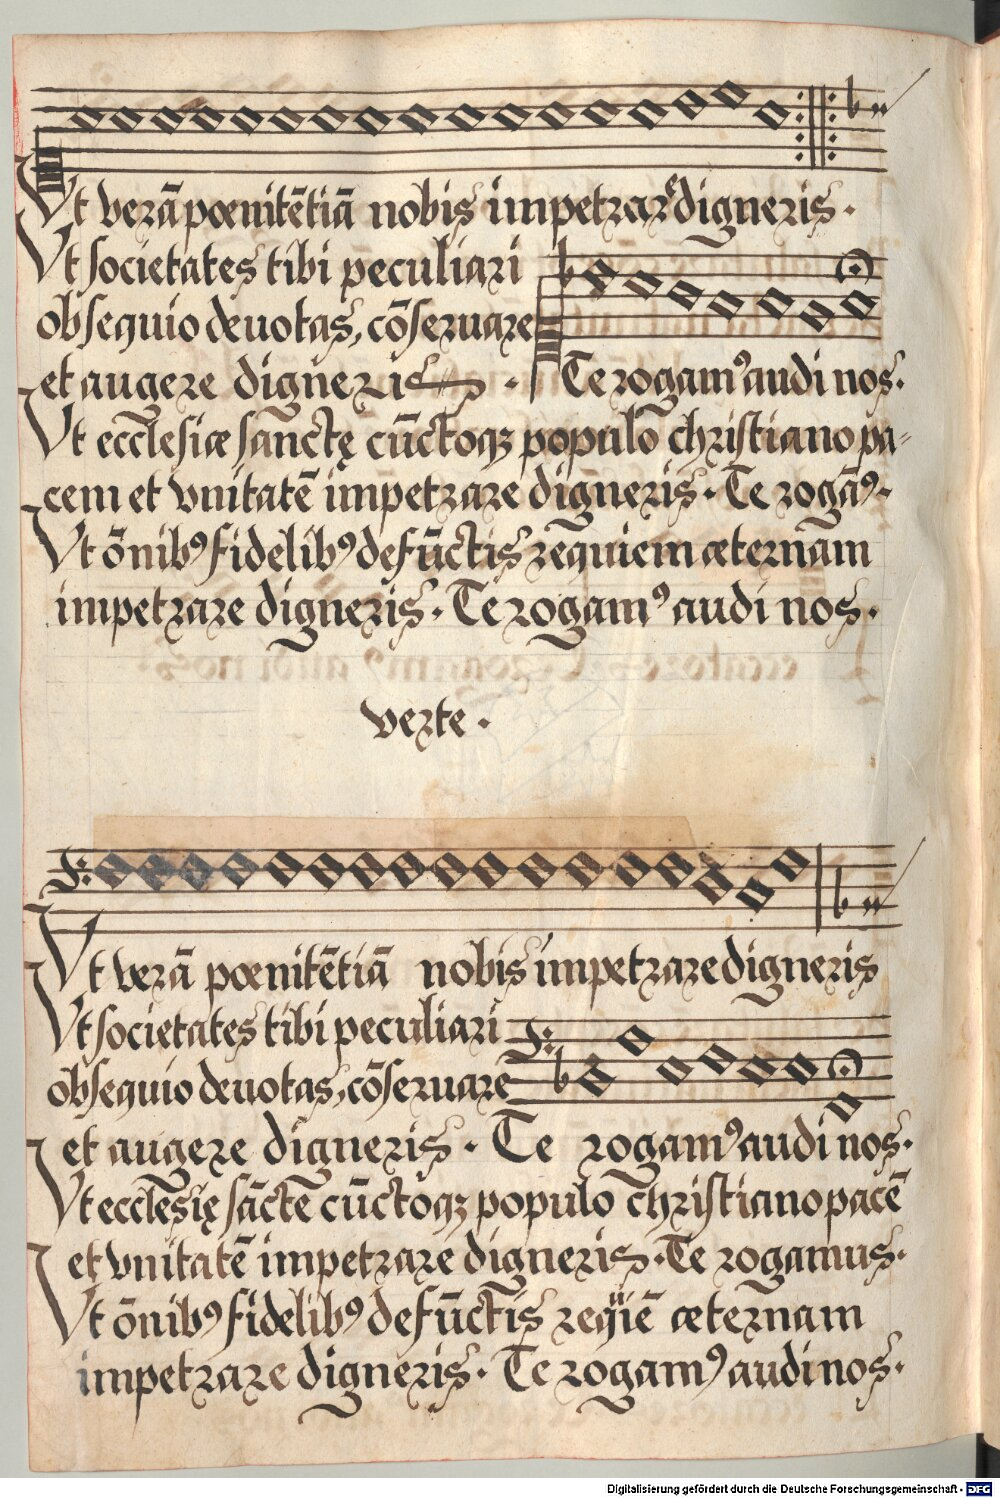 Vt verā pœnitētiā nobis impetrarē digneris.
Vt societates tibi peculiari
obsequio deuotas, cōseruare
et augere digneris. Te rogamꝰ audi nos.
Vt ecclesiæ sanctę cūctoqꝫ populo christiano pa-
cem et vnitatē impetrare digneris. Te rogāꝰ.
Vt ōnibꝰ fidelibꝰ defūctis requiem æternam
impetrare digneris. Te rogamꝰ audi nos.
verte.
Vt verā pœnitētiā nobis impetrare digneris
Vt societates tibi peculiari
obsequio deuotas, cōseruare
et augere digneris. Te rogamꝰ audi nos.
Vt ecclesię sācte cūctoqꝫ populo christiano pacē
et vnitatē impetrare digneris. Te rogamus.
Vt ōnibꝰ fidelibꝰ defūctis reqiē æternam
impetrare digneris. Te rogamꝰ audi nos.
Digitalisierung gefördert durch die Deutsche Forschungsgemeinschaft - DFG